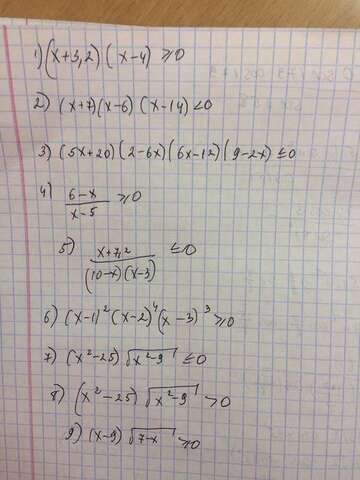 1) (x+3,2)(x-4) ≥0
2) (x+7)(x-6)(x-14)<0
3) (5x+20)(2-6x)(6x-12)(9-2x)≤0
4) (6-x)/(x-5) ≥0
5) (x+7,2)/((10-x)(x-3)) ≤0
6) (x-1)²(x-2)⁴(x-3)³≥0
7) (x²-25)√(x²-9) ≤0
8) (x²-25)√(x²-9) >0
9) (x-9)√(7-x) ≥0